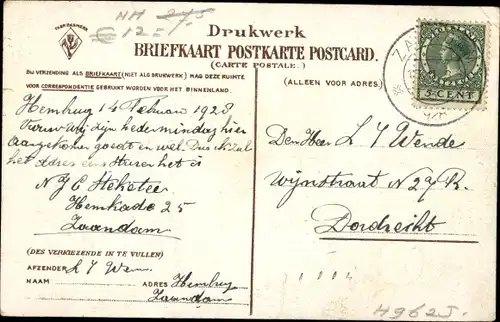 NH 27,5
€ 12=
FABRIEKSMERK
Drukwerk
BRIEFKAART POSTKARTE POSTCARD.
(CARTE POSTALE.)
BIJ VERZENDING ALS BRIEFKAART (NIET ALS DRUKWERK) MAG DEZE RUIMTE
VOOR CORRESPONDENTIE GEBRUIKT WORDEN VOOR HET BINNENLAND.
(ALLEEN VOOR ADRES)
ZA
5 CENT
Hembrug 14 Februari 1928
zijn hedenmiddag hier
aangekomen goed en wel. Dus ik zal
het adres sturen het is
N J C Steketee
Hemkade 25
Zaandam
Den Heer L J Wende
Wijnstraat N 27 R.
Dordrecht
(DES VERKIEZENDE IN TE VULLEN)
AFZENDER L J Wen
NAAM ADRES Hembrug
Zaandam
4962J.